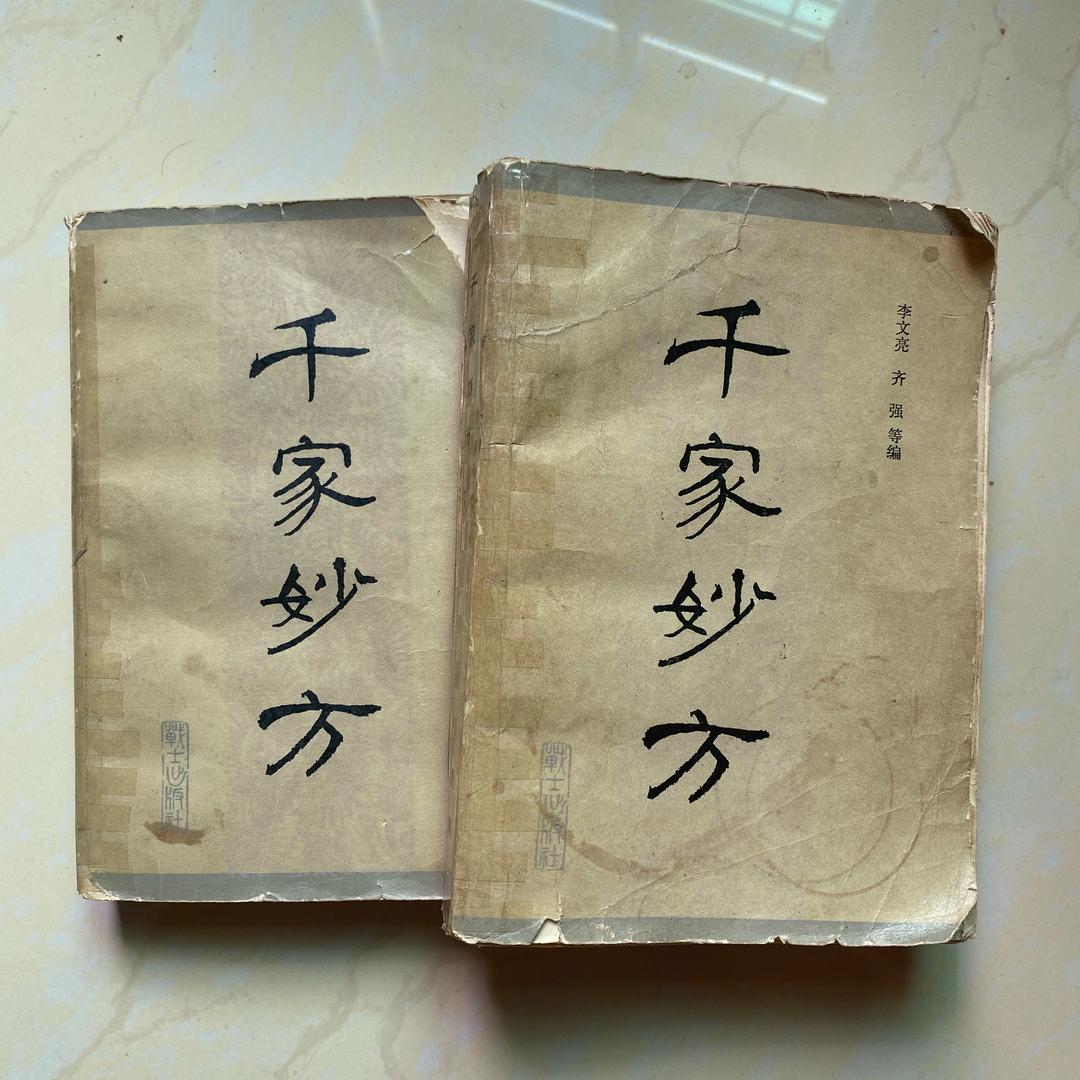 千家妙方
戰士出版社
千家妙方
李文亮 齐 强 等编
戰士出版社